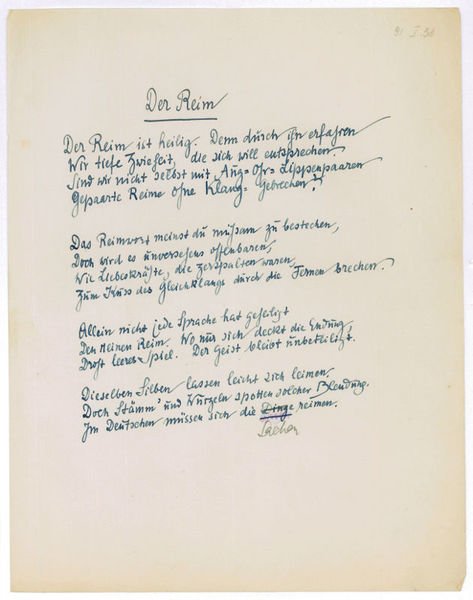 Der Reim
Der Reim ist heilig. Denn durch ihn erfahren
Wir tiefe Zwieheit, die sich will entsprechen.
Sind wir nicht selbst mit Aug= Ohr= Lippenpaaren
Gepaarte Reime ohne Klang= Gebrechen?
Das Reimwort meinst du mühsam zu bestechen,
Doch wird es unversehens offenbaren,
Wie Liebeskräfte, die zerspalten waren,
Zum Kuss des Gleichklangs durch die Fernen brechen.
Allein nicht jede Sprache hat geheiligt
Den reinen Reim. Wo nur sich deckt die Endung,
Droht leeres Spiel. Der Geist bleibt unbeteiligt.
Dieselben Silben lassen leicht sich leimen.
Doch Stämm' und Wurzeln spotten solcher Blendung.
Im Deutschen müssen sich die Dinge reimen.
Sachen